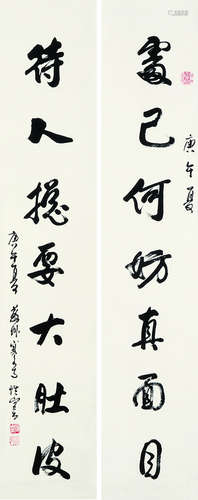 處己何妨真面目
庚午夏
待人總要大肚皮
庚午夏月